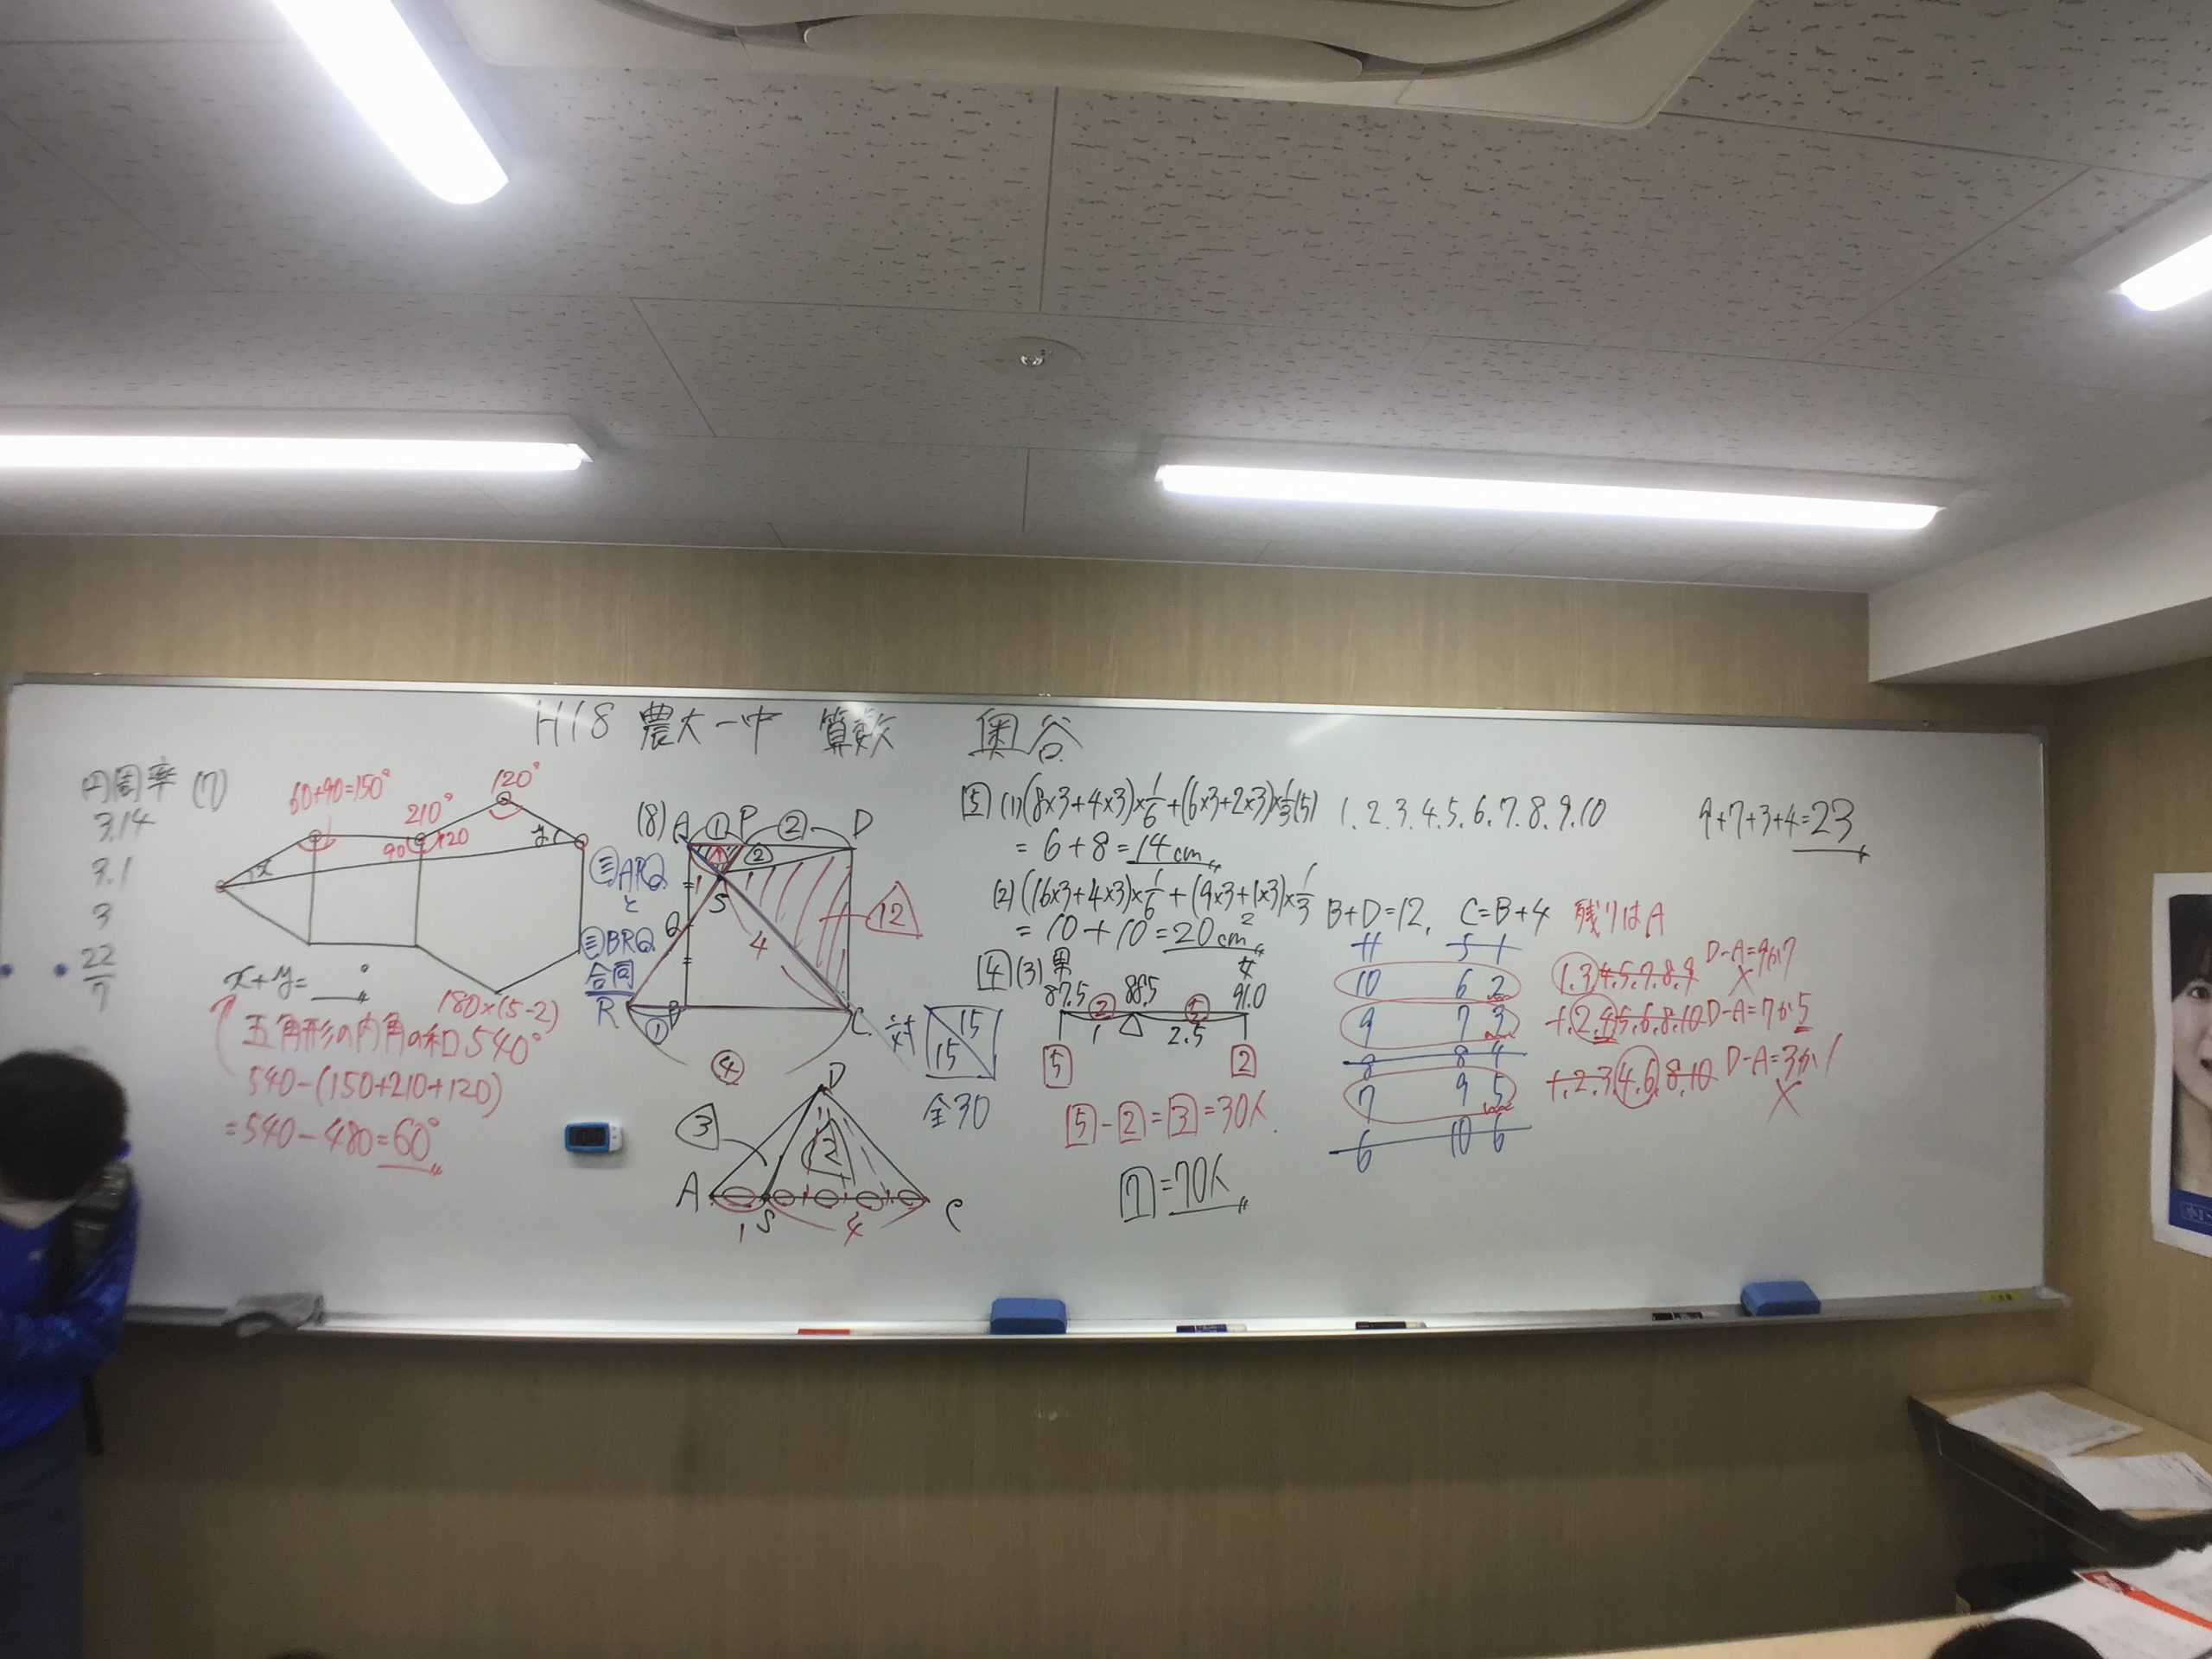 H18 農大一中 算数 奥谷
円周率
3.14
3.1
3
22
7
(7)
60+90=150°
210°
120°
90
120
x
y
x+y= °
180×(5-2)
五角形の内角の和 540°
540-(150+210+120)
=540-480=60°
(8) A ① P ② D
① ②
三ARQ
と
三BRQ
合同
1
S
Q
4
12
R ① B C
④
対 15
15
全30
D
3
12
A S C
1 4
5 (1)(8×3+4×3)×1/6+(6×3+2×3)×1/3
=6+8=14cm
(2)(16×3+4×3)×1/6+(9×3+1×3)×1/3
=10+10=20cm²
4 (3) 男 女
87.5 88.5 91.0
② ⑤
1 2.5
5 2
5-2=3=30人
7=70人
(5) 1.2.3.4.5.6.7.8.9.10
B+D=12, C=B+4 残りはA
11 5 1
10 6 2 1.3.4.5.7.8.9 D-A=9か7
×
9 7 3 1.2.4.5.6.8.10 D-A=7か5
8 8 4
7 9 5 1.2.3.4.6.8.10 D-A=3か1
×
6 10 6
9+7+3+4=23